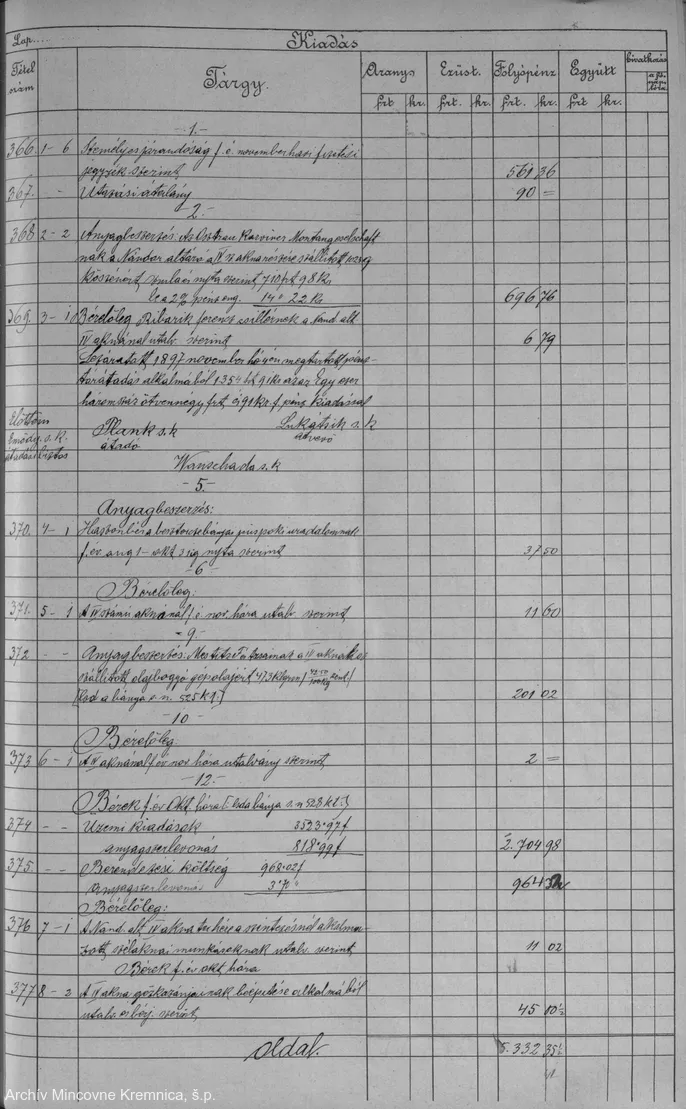 Lap....
Kiadás
Tétel szám
Tárgy.
Arany
Ezüst.
Folyópénz
Együtt
hivatkozás
frt kr. frt kr. frt. kr. frt kr.
-1.-
366. 1-6 Személyes járandóság f. é. november havi fizetési
jegyzék szerint 561 36
367. - - Utazási átalány 90 =
-2.-
368 2-2 Anyagbeszerzés. Az Osztrau Karviner Montangesellschaft
nak a Nándor altáró a IV szaknarészére szállított
kőszénért, számla és nyta szerint 710 frt 98 kr
le a 2% pénz eng. 14 " 22 kr 696 76
369. 3-1 Bérelőleg Ribarik ferencz csillérnek a Nand. alt.
IV aknánál utalv. szerint 6 79
Lezáratott 1897 november hó én megtartott pénz-
tárátadás alkalmából 1354 frt 91 kr azaz Egy ezer
háromszáz ötvennégy frt, és 91 kr. f. pénz kiadással
Előttem
s. k.
átadási biztos
Plank s.k
átadó
Lukátsik s. k
átvevő
Wanschada s. k
-5.-
Anyagbeszerzés:
370. 4-1 Haszonbér a besztercebányai püspöki uradalomnak
f. év aug 1- okt 31 ig nyta szerint 37 50
-6-
Bérelőleg:
371. 5-1 A IV számú aknánál f. é. nov. hóra utalv. szerint 11 60
-9.-
372. - - Anyagbeszerzés: a IV aknának
szállított olajbogyó gépolajért 473 klgrm
[Lsd a bánya e n. 525 k t.] 201 02
-10-
Bérelőleg.
373 6-1 A IV aknánál f. év nov. hóra utalvány szerint 2 =
-12.-
Bérek f. év Okt. hóra [Lsd a bánya s. n 528 k t.]
374 - - Üzemi kiadások 3533 " 97 f
anyagszerlevonás 818 " 99 f 2.704 98
375. - - Berendezési költség 968 " 02 f
anyagszerlevonás 3 " 70 " 964 32
Bérelőleg:
376 7-1 A Nand. alt IV akna terhére a szintezésnél alkalma-
zott, szélaknai munkásoknak utalv. szerint 11 02
Bérek f. év okt. hóra
377 8-2 A IV akna gőzkazánjainak beépítése alkalmából
utalv. és bérj. szerint 45 10½
oldal. 5.332 35½
Archív Mincovne Kremnica, š.p.